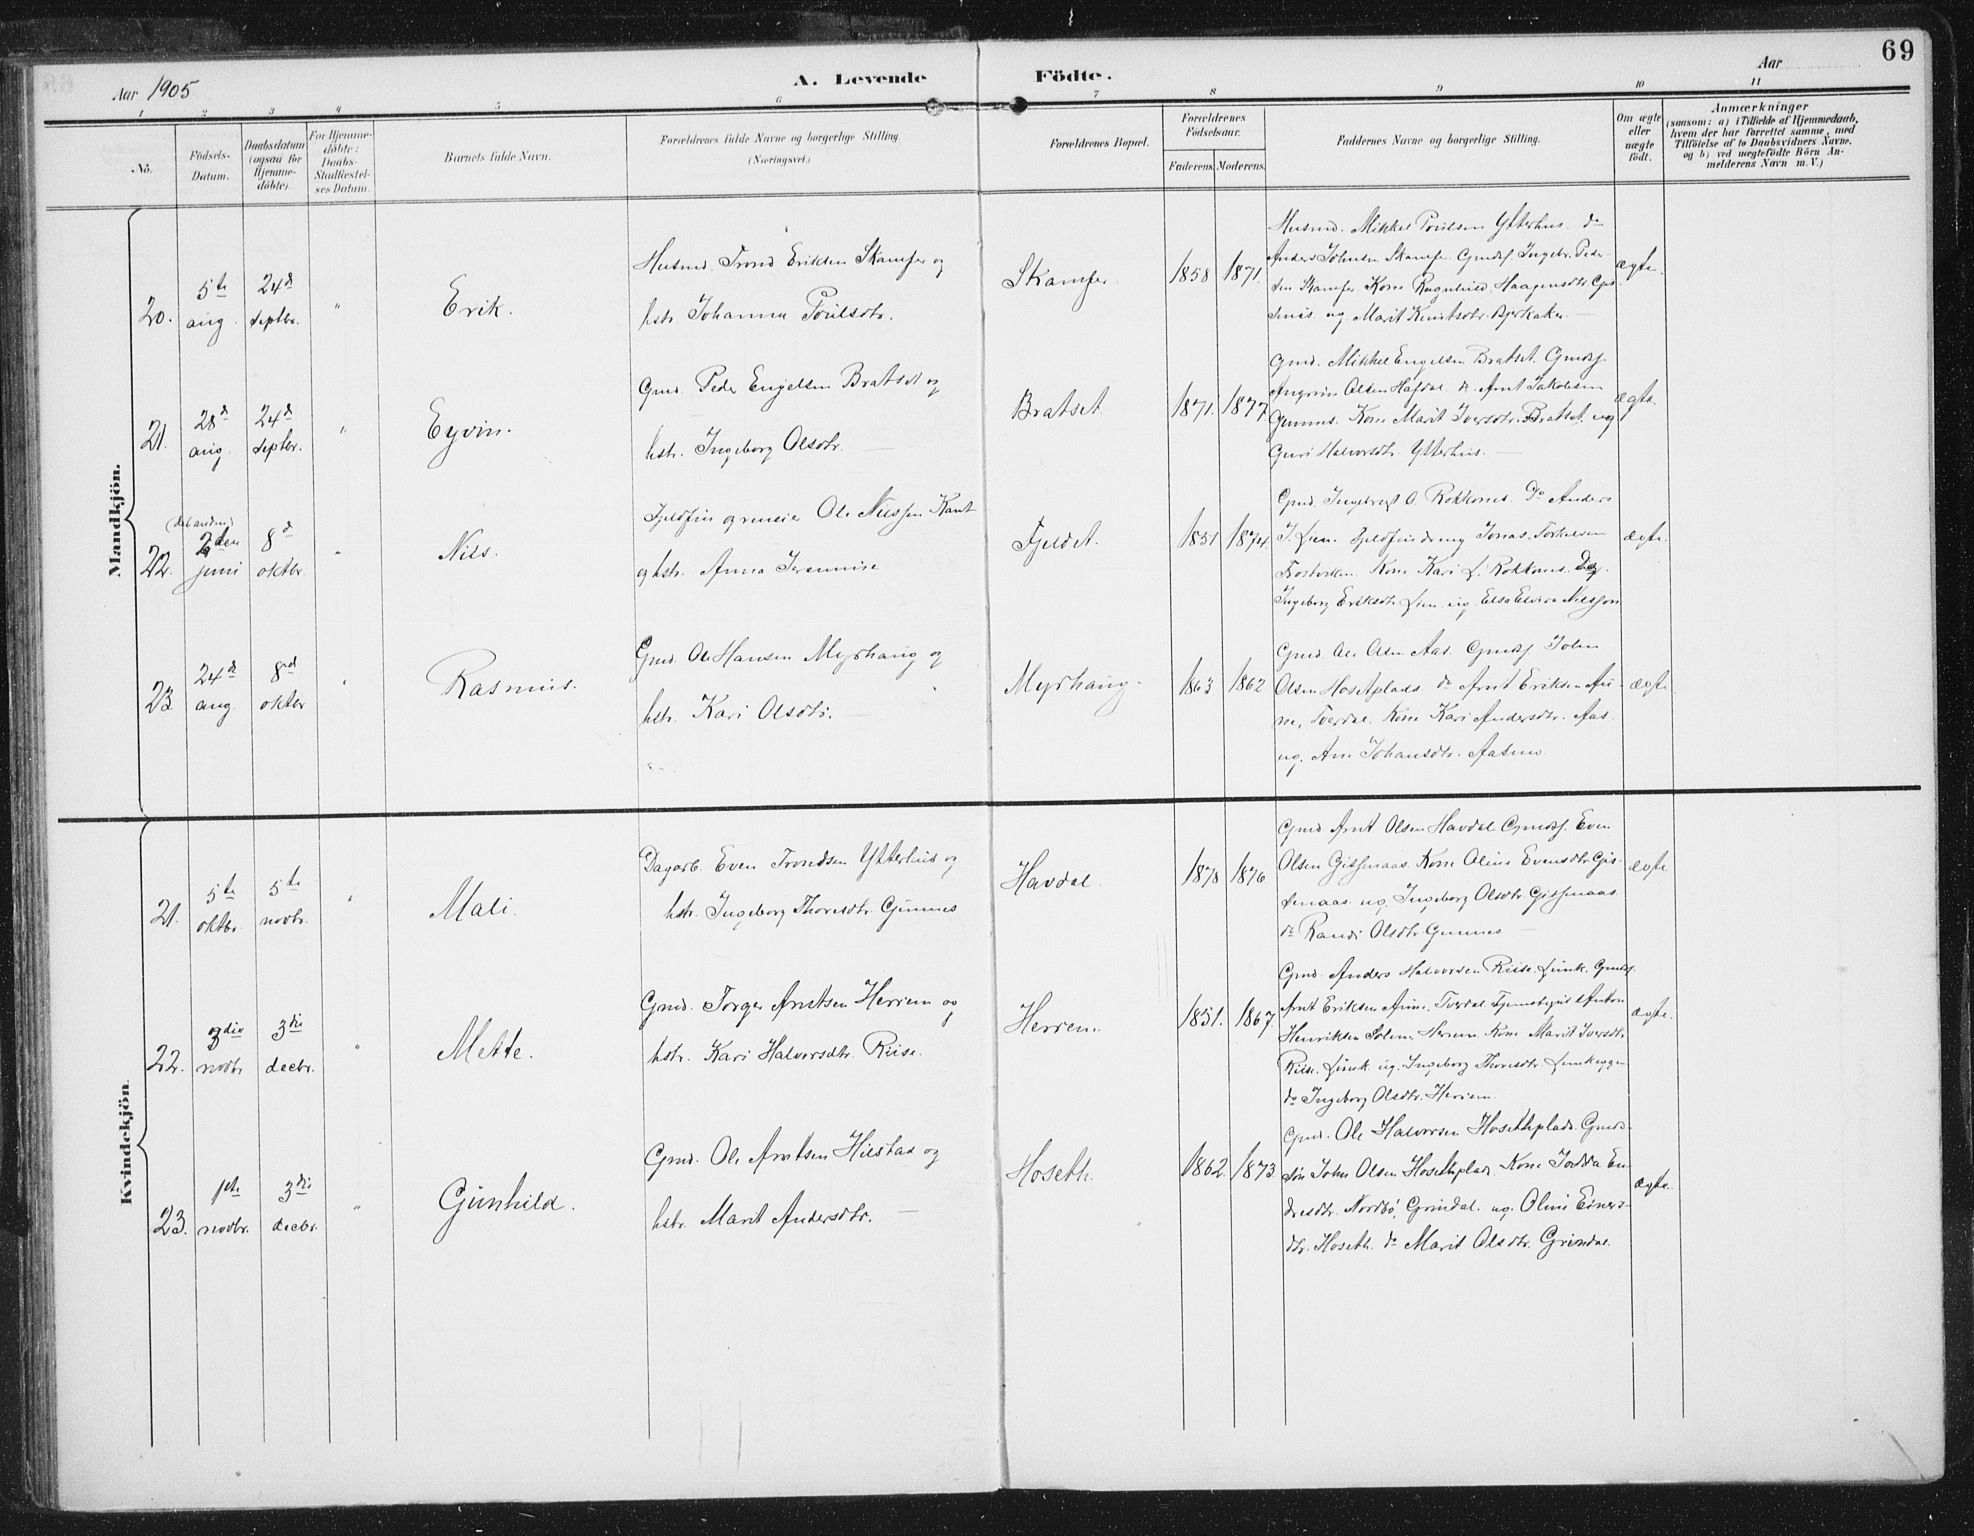 69
Aar 1905
A. Levende Födte.
Aar
1 2 3 4 5 6 7 8 9 10 11
No.
Födsels-
Datum.
Daabsdatum
(ogsaa for
Hjemme-
döbte).
For Hjemme-
döbte:
Daabs-
Stadfæstel-
ses Datum.
Barnets fulde Navn.
Forældrenes fulde Navne og borgerlige Stilling.
(Næringsvei.)
Forældrenes Bopæl.
Forældrenes
Födselsaar.
Faderens. Moderens.
Faddernes Navne og borgerlige Stilling.
Om ægte
eller
uægte
födt.
Anmærkninger
(saasom: a) i Tilfælde af Hjemmedaab,
hvem der har forrettet samme, med
Tilföielse af to Daabsvidners Navne,
og b) ved uægtefödte Börn An-
melderens Navn m. V.)
Mandkjön.
20.
5te
aug.
24d
septbr.
"
Erik.
Husmd. Trond Eriksen Skamfer og
hstr. Johanna Poulsdtr.
Skamfer.
1858
1871.
Husmd. Mikkel Poulsen Ytterhus. do
Anders Johnsen Skamfer. Gmds. Ingebr. Peder
sen Skamfer. Kone Ragnhild Haagensdtr. Gis
snås. og Marit Knutsdtr. Bjerkaker.
ægte.
21.
28d
aug.
24d
septbr.
"
Eyvin.
Gmd. Peder Engelsen Bratset og
hstr. Ingeborg Olsdtr.
Bratset
1871.
1877
Gmd. Mikkel Engelsen Bratset. Gmdsf.
Olsen Hafdal. do. Arnt Jakobsen
Gunnes. Kone Marit Iversdtr. Bratset og
Guri Halvorsdtr. Ytterhus.
ægte.
22.
2den
juni
8d
oktbr.
"
Nils.
Ole Nilssen Kant
og hstr. Anna Jeremine
Fjeldet.
1851
1874.
Gmd. Ingebrigt O. Rokkones. Do Anders
J. Lien. Jonas Torkelsen
Kone Kari L. Rokkones.
Ingeborg Eriksdtr. Lien og Elsa Elvira Nilssen
ægte.
23.
24d
aug.
8nd
oktbr
"
Rasmus.
Gmd. Ole Hansen Myrhaug og
hstr. Kari Olsdtr.
Myrhaug.
1863
1862
Gmd. Ole Olsen Aas. Gmdsf. John
Olsen Hosetplads do Arnt Eriksen Au-
ne, Tverdal. Kone Kari Andersdtr. Aas
og Ane Johansdtr. Aasmo.
ægte
Kvindekjön.
21.
5te
oktbr.
5te
novbr.
"
Mali.
Dagarb. Even Trondsen Ytterhus og
hstr. Ingeborg Thoresdtr. Gunnes
Havdal.
1878
1876
Gmd Arnt Olsen Havdal Gmdsf. Even
Olsen Gissnaas. Kone Oline Evensdtr. Gis-
snaas og Ingeborg Olsdtr. Gissnaas.
do Randi Olsdtr. Gunnes
ægte
22.
3die
novbr
3die
decbr.
"
Mette.
Gmd. Torger Arntsen Herrem og
hstr. Kari Halvorsdtr. Riise.
Herrem.
1851.
1867.
Gmd. Anders Halvorsen Riise. Lunk. Gmdsf.
Arnt Eriksen Aune, Tverdal. Anton
Henriksen Solem, Herrem. Kone Marit Iversdtr.
Riise. Lunk og Ingeborg Thoresdtr. Lunkeggen
do Ingeborg Olsdtr. Herrem.
ægte.
23.
1ste
novbr.
3die
decbr.
"
Gunhild.
Gmd. Ole Arntsen Hilstad og
hstr. Marit Andersdtr.
Hoseth.
1862
1873
Gmd. Ole Halvorsen Hosethplads. Gmds-
søn John Olsen Hosethplad. Kone Jodda En
dresdtr. Nordbø, Grindal. og Oline Einers-
dtr. Hoseth. do Marit Olsdtr. Grindal.
ægte.